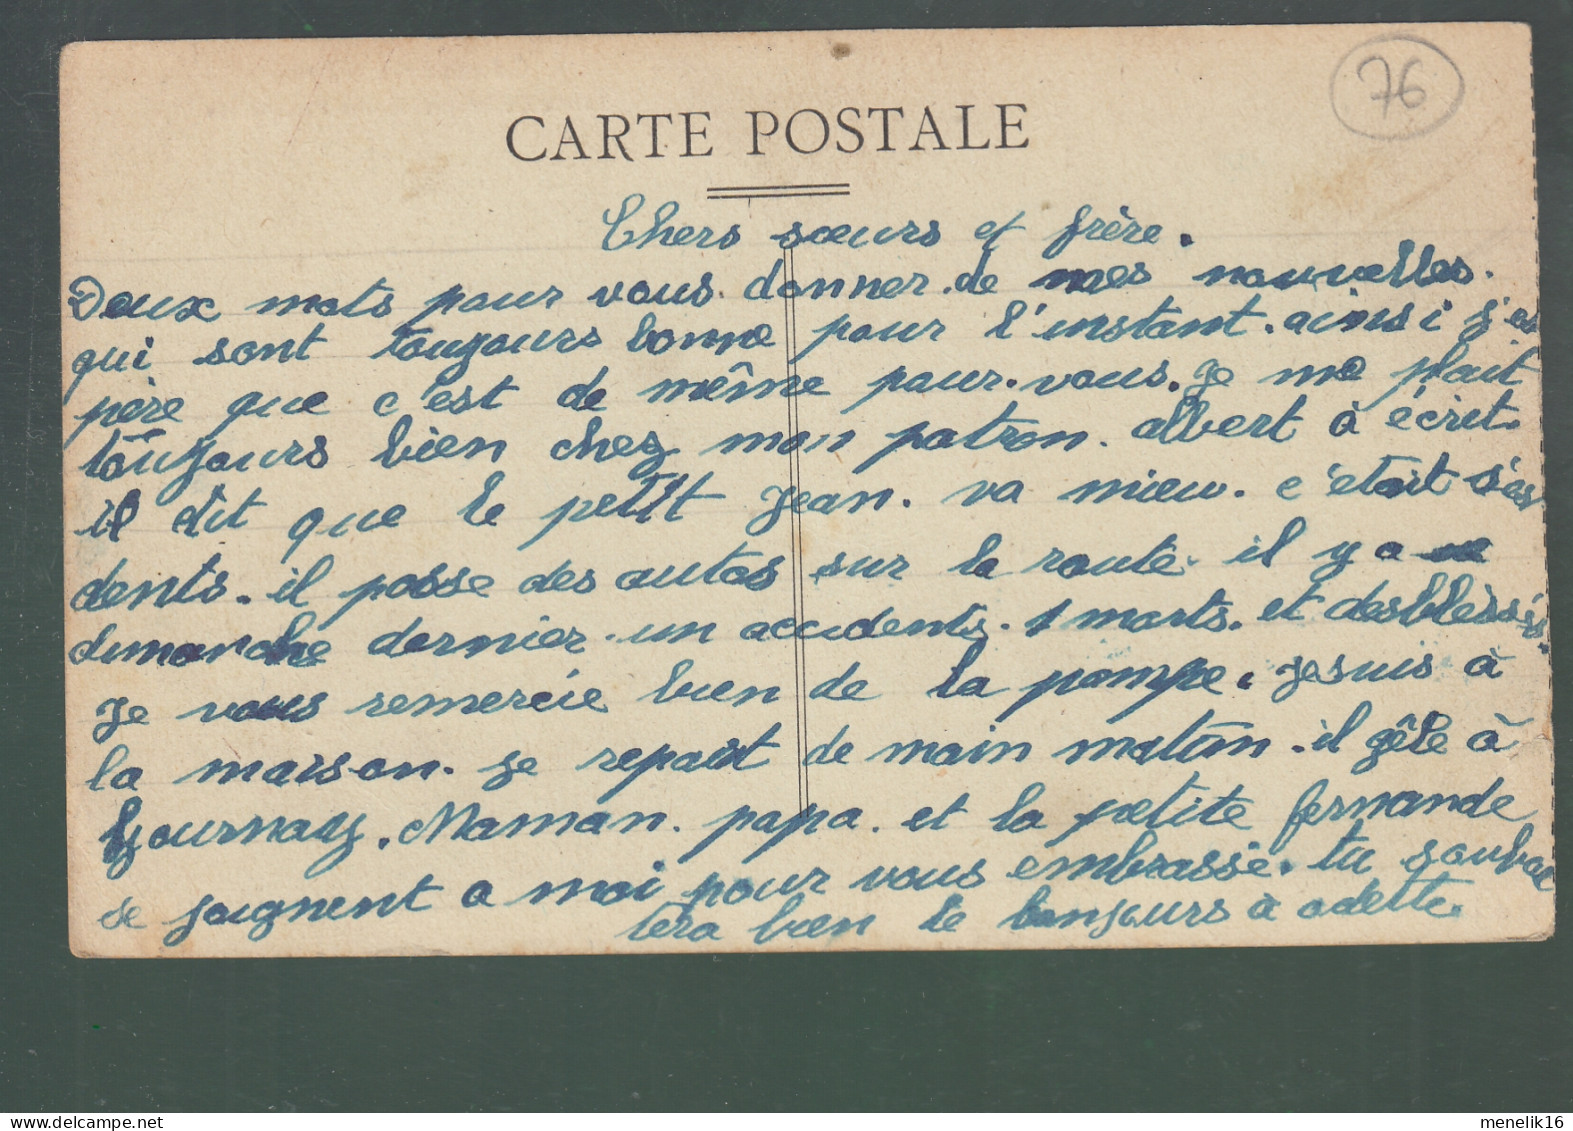 76
CARTE POSTALE
Chers sœurs et frère.
Deux mots pour vous donner de mes nouvelles.
qui sont toujours bonne pour l'instant. ainsi j'es
père que c'est de même pour vous. je me plait
toujours bien chez mon patron. albert à écrit.
il dit que le petit jean. va mieu. c'etait s'es
dents. il posse des autos sur la route. il y a
dimanche dernier un accidents. 1 morts. et des blessés.
je vous remercie bien de la pompe. je suis à
la maison. je repait de main matin. il gêle à
gournay. Maman. papa. et la petite fernande
se joignent a moi pour vous embrasse. tu souhai
tera bien le bonjours à odette.
menelik16